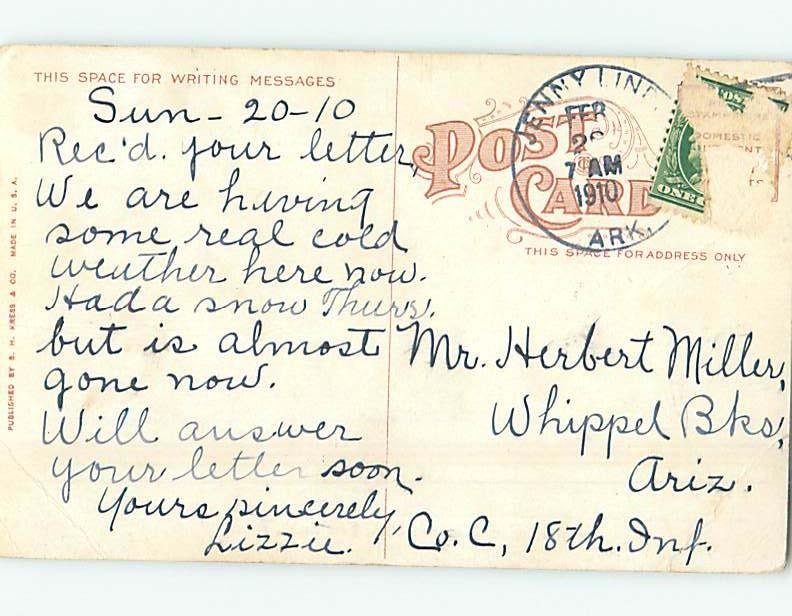 THIS SPACE FOR WRITING MESSAGES
Sun - 20-10
Rec'd. your letter,
We are having
some real cold
weather here now.
Had a snow Thurs.
but is almost
gone now.
Will answer
your letter soon.
Yours sincerely,
Lizzie.
PUBLISHED BY S. H. KRESS & CO. MADE IN U. S. A.
POST CARD
THIS SPACE FOR ADDRESS ONLY
JENNY LIND
FEB
7 AM
1910
ARK.
ONE
DOMESTIC
Mr. Herbert Miller,
Whippel Bks,
Ariz.
Co. C, 18th. Inf.